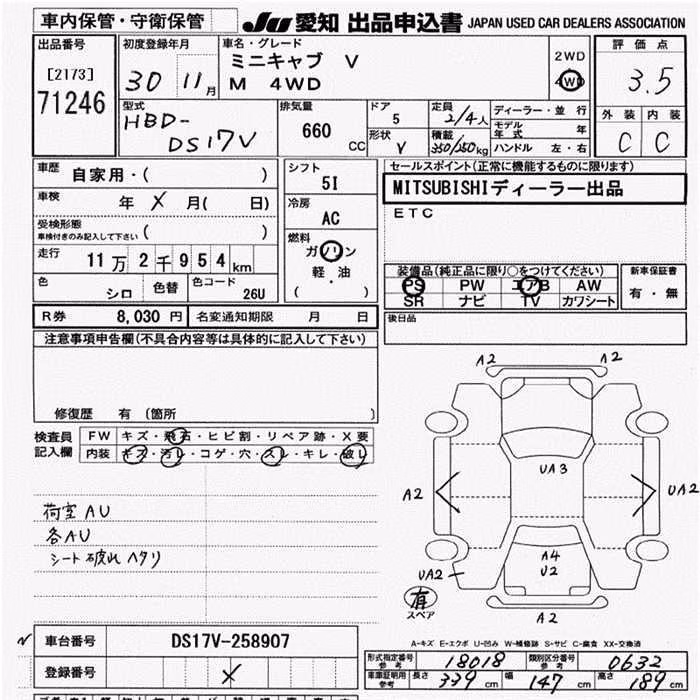 車内保管・守衛保管
JU 愛知 出品申込書 JAPAN USED CAR DEALERS ASSOCIATION
出品番号
[2173]
71246
初度登録年月
30 11月
車名・グレード
ミニキャブ V
M 4WD
2WD
4WD
評価点
3.5
外装 内装
C C
型式
HBD-
DS17V
排気量
660 CC
ドア
5
形状
V
定員
2/4人
積載
350/250kg
ディーラー・並行
モデル年式 年
ハンドル 左・右
車歴 自家用・( )
車検 年 X 月( 日)
受検形態
車検付きのみ記入して下さい ( )
走行 11万2千954km
色 シロ 色替 色コード 26U
シフト
5I
冷房
AC
燃料
ガソリン
軽・油
( )
セールスポイント(正常に機能するものに限ります)
MITSUBISHIディーラー出品
ETC
装備品(純正品に限り○をつけてください)
PS PW エアB AW
SR ナビ TV カワシート
新車保証書
有・無
後日品
R券 8,030 円 名変通知期限 月 日
注意事項申告欄(不具合内容等は具体的に記入して下さい)
修復歴 有 (箇所 )
検査員記入欄
FW キズ・飛石・ヒビ割・リペア跡・X要
内装 キズ・汚レ・コゲ・穴・スレ・キレ・破レ
荷室AU
各AU
シート破れ ヘタリ
A2 A2
UA3
A2 UA2
A4
U2
UA2
有
スペア
A2
A-キズ E-エクボ U-凹み W-補修跡 S-サビ C-腐食 XX-交換済
車台番号 DS17V-258907
登録番号 X
形式指定番号参考 18018 類別区分番号参考 0632
車庫証明用参考 長さ 339 cm 幅 147 cm 高さ 189 cm